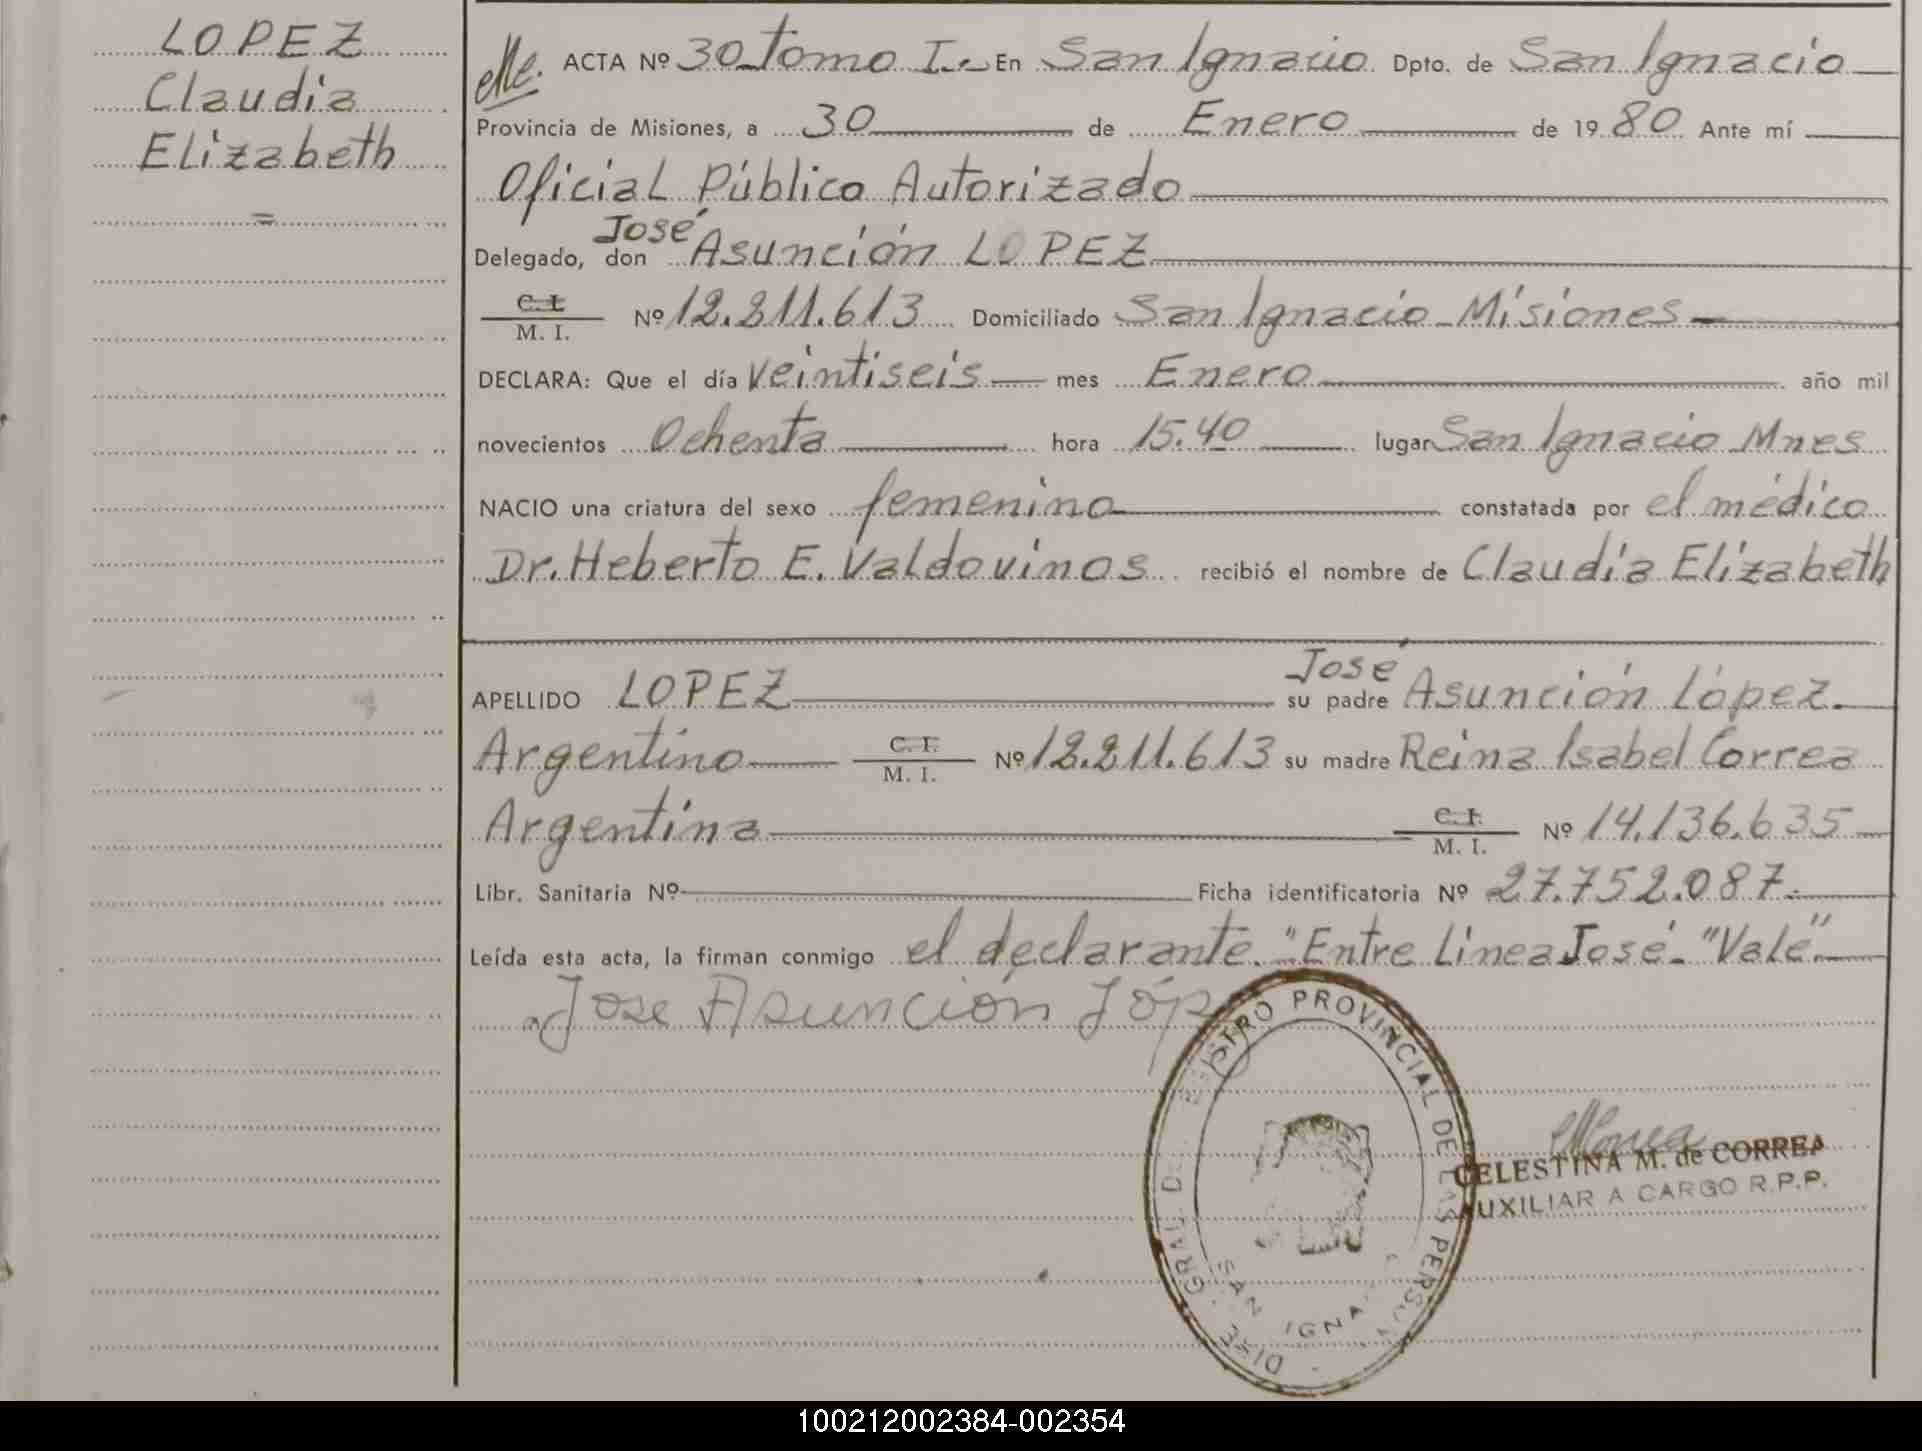 LOPEZ
Claudia
Elizabeth
=
ACTA Nº 30 tomo I.- En San Ignacio Dpto. de San Ignacio
Provincia de Misiones, a 30 de Enero de 1980 Ante mí
Oficial Público Autorizado
José
Delegado, don Asunción LOPEZ
C. I.
M. I. Nº 12.211.613 Domiciliado San Ignacio - Misiones
DECLARA: Que el día veintiseis mes Enero año mil
novecientos Ochenta hora 15.40 lugar San Ignacio Mnes
NACIO una criatura del sexo femenino constatada por el médico
Dr. Heberto E. Valdovinos recibió el nombre de Claudia Elizabeth
José
APELLIDO LOPEZ su padre Asunción López.
Argentino C. I. Nº 12.211.613 su madre Reina Isabel Correa
M. I.
Argentina C. I. Nº 14.136.635
M. I.
Libr. Sanitaria Nº Ficha identificatoria Nº 27.752.087.-
Leída esta acta, la firman conmigo el declarante. "Entre Linea José - "Vale"
Jose Asunción Lóp
PROVINCIAL DE LAS PERSON
GRAL
SAN IGNA
CELESTINA M. de CORREA
AUXILIAR A CARGO R.P.P.
100212002384-002354